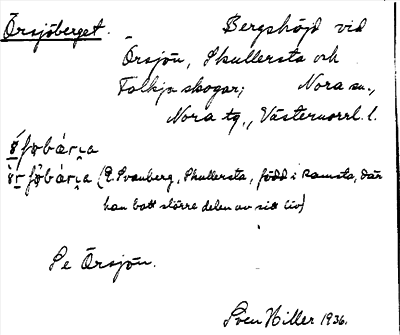 Örsjöberget. Bergshöjd vid
Örsjön, Skullersta och
Folkja skogar; Nora sn.,
Nora tg., Västernorrl. l.
(E. Svanberg, Skullersta, född i Ramsta, där
han bott större delen av sitt liv)
Se Örsjön.
Sven Hiller 1936.